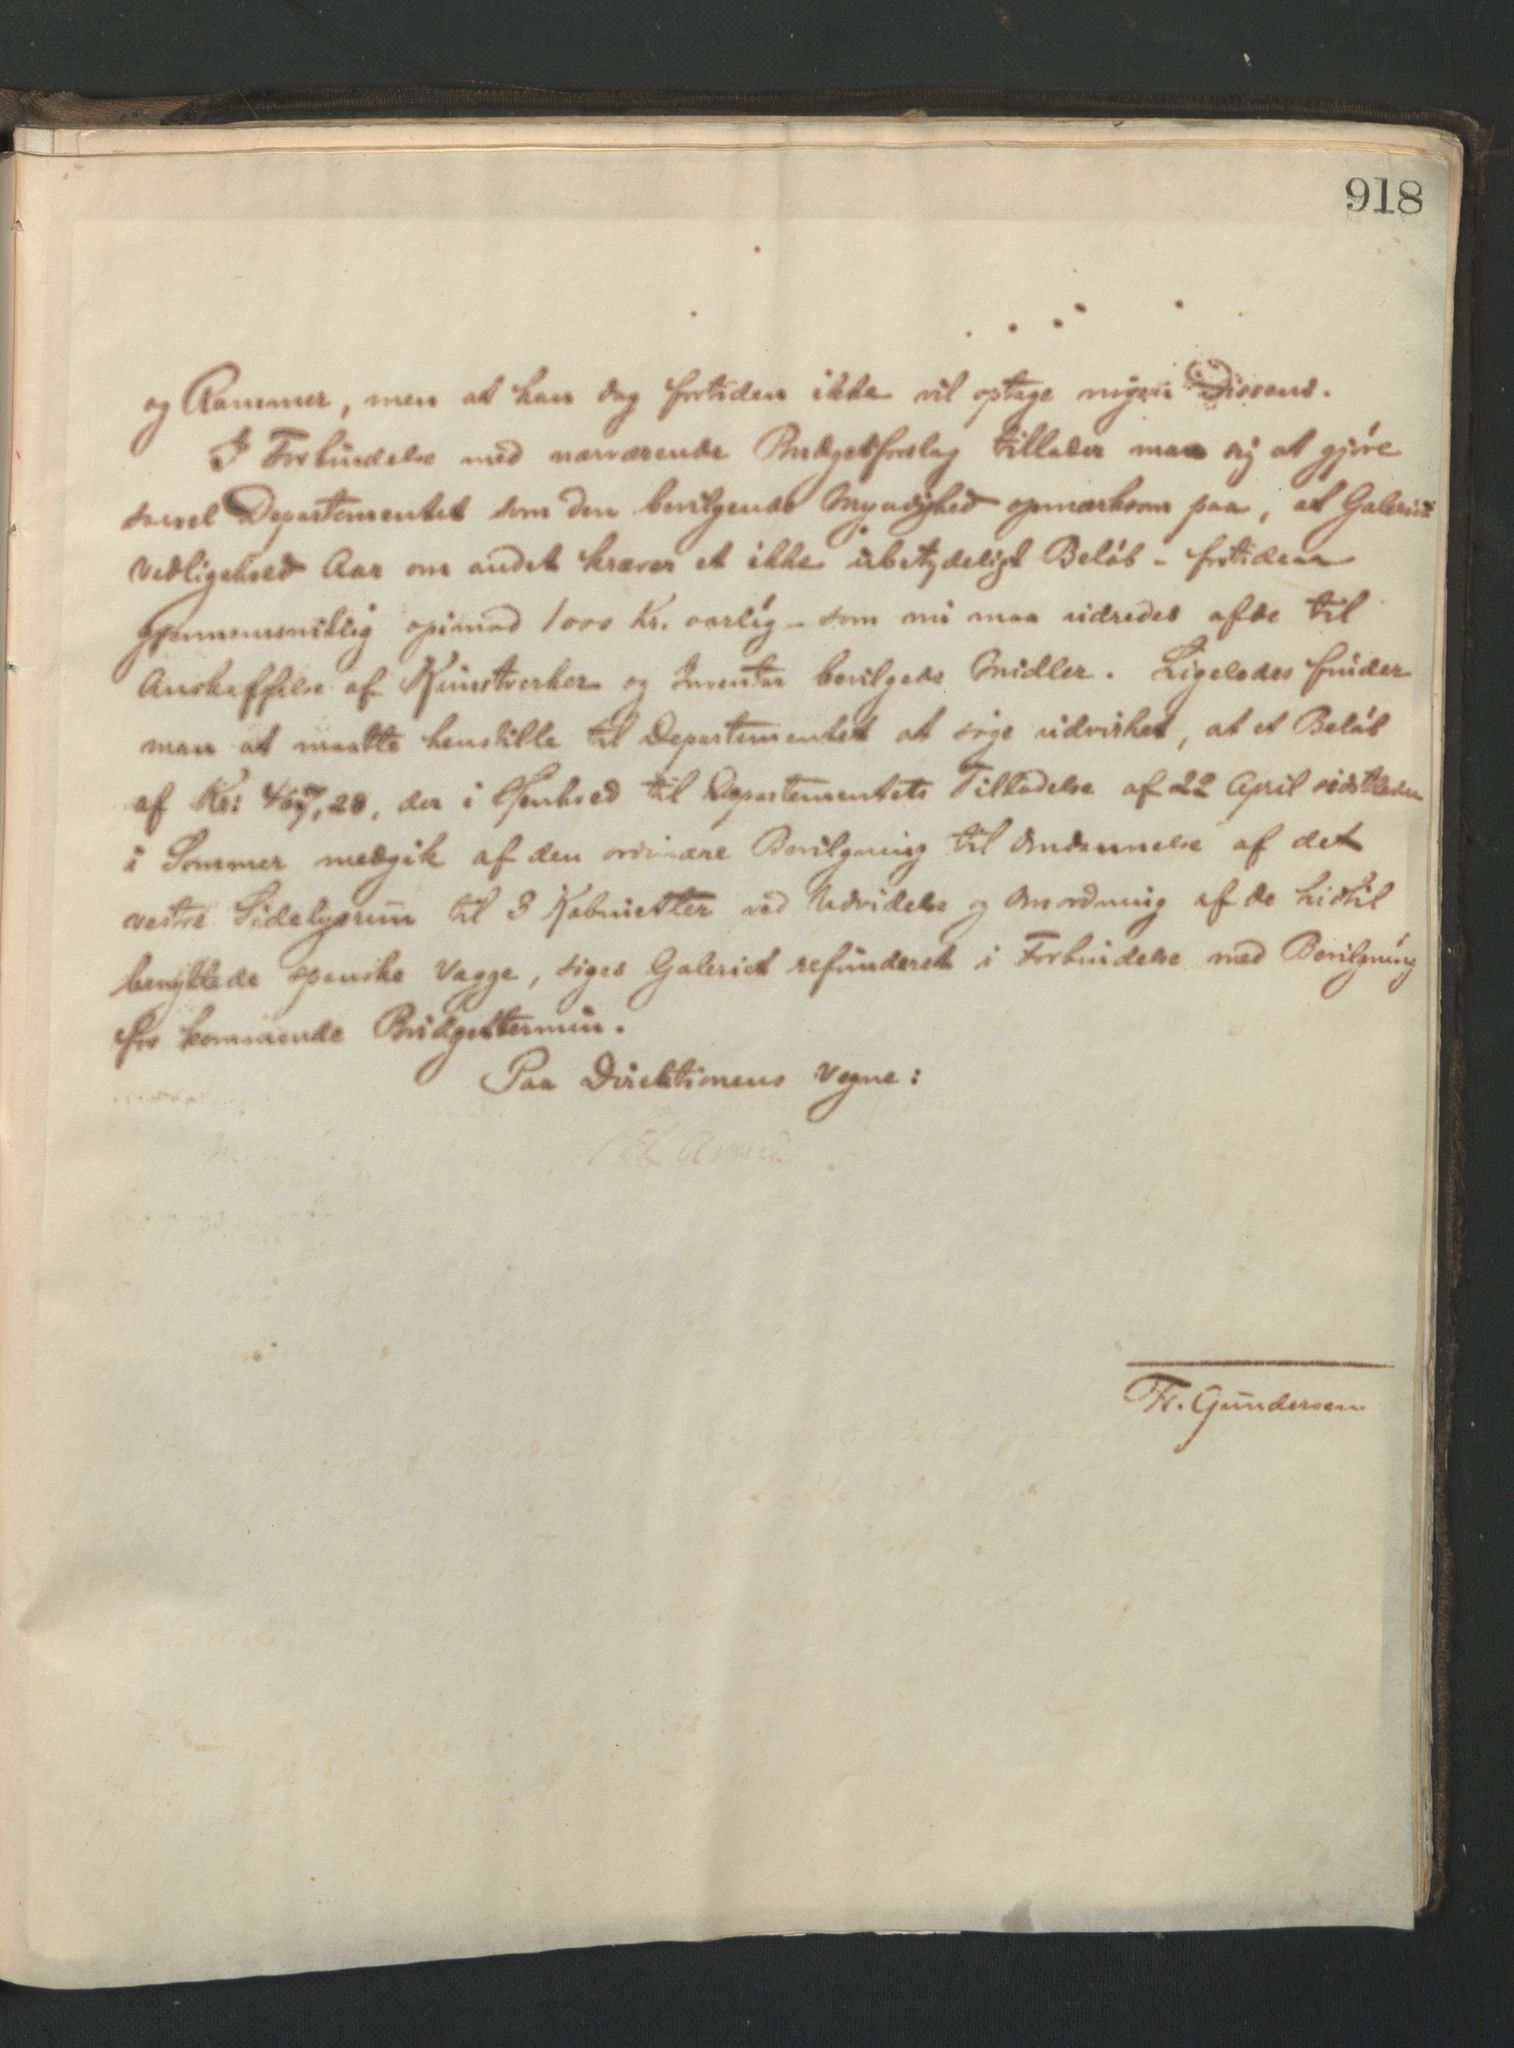 918
og Rammer, men at han dog fortiden ikke vil optage nogen Dissens.
I Forbindelse med nærværende Budgetforslag tillader man sig at gjøre
saavel Departementet som den bevilgende Myndighed opmærksom paa, at Galeriets
Vedligehold Aar om andet kræver et ikke ubetydeligt Beløb - fortiden
gjennemsnitlig opimod 1000 Kr. aarlig - som nu maa udredes af de til
Anskaffelse af Kunstverker og Inventar bevilgede Midler. Ligeledes finder
man at maatte henstille til Departementet at søge udvirket, at et Beløb
af Kr: 467,28, der i Henhold til Departementets Tilladelse af 22 April sidstleden
i Sommer medgik af den ordinære Bevilgning til Omdannelse af det
vestre Sidelysrum til 3 Kabinetter ved Udvidelse og Omordning af de hidtil
benyttede spanske Vægge, søges Galeriet refunderet i Forbindelse med Bevilgning
for kommende Budgettermin.
Paa Direktionens Vegne:
Fr. Gundersen